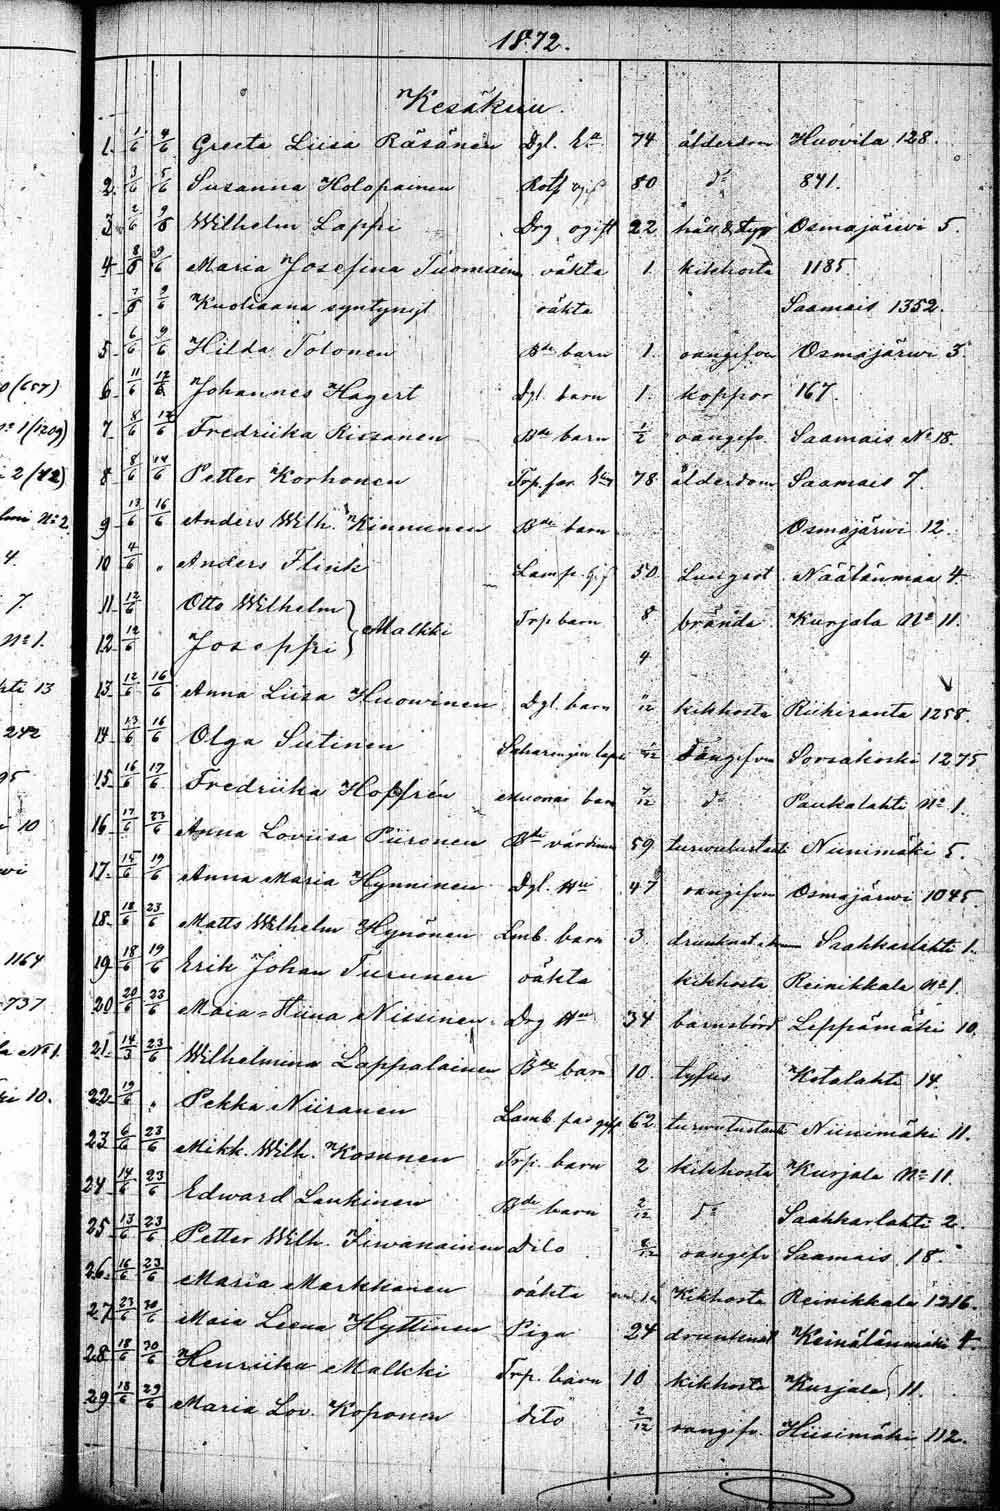 1872.
Kesäkuu
1. 1/6 9/6 Greeta Liisa Räsänen Dgl. Ea 74 ålderdom Huovila 128.
2. 3/6 5/6 Susanna Holopainen Rotf 80 do 841.
3 2/6 9/6 Wilhelm Lappi Drg ogift 22 håll & tyf Osmajärwi 5.
4. 8/6 9/6 Maria Josefina Tuomainen oäkta 1. kikhosta 1185
7/6 9/6 Kuoliaana syntynyt oäkta Saamais 1352.
5. 6/6 9/6 Hilda Tolonen Bde barn 1. oangifven Osmajärwi 3
6. 11/6 12/6 Johannes Hagert Dgl. barn 1. koppor 167.
7. 8/6 12/6 Fredriika Rissanen Bde barn 1/2 oangifv. Saamais No 18.
8 8/6 14/6 Petter Korhonen Trp. far 78 ålderdom Saamais 7.
9 13/6 16/6 Anders Wilh. Kinnunen Bde barn Osmajärwi 12.
10 4/6 " Anders Flink Lamp. 50. Lungsot Näälänmaa 4.
11. 12/6 Otto Wilhelm Trp barn 8 brända Kurjala No 11.
12. 12/6 Joseppi } Malkki 4
13. 12/6 16/6 Anna Liisa Huowinen Dgl. barn kikhosta Riihiranta 1258.
14. 13/6 16/6 Olga Sutinen oangifven Sorsakoski 1275
15. 16/6 17/6 Fredriika Hoffrén Muonas barn 7/12 do Paukalahti No 1.
16. 17/6 23/6 Anna Loviisa Piironen Bde värdinna 59 Niinimäki 5.
17. 15/6 19/6 Anna Maria Hynninen Dgl. Hu 47 oangifven Osmajärwi 1045
18. 18/6 23/6 Matts Wilhelm Hynönen Lmb. barn 3. Saahkarlahti 1.
19 18/6 19/6 Erik Johan Turunen oäkta kikhosta Reinikkala No 1.
20 20/6 23/6 Maia=Stiina Nissinen Drg Hu 34 barnsbörd Leppämäki 10.
21. 14/3 23/6 Wilhelmina Lappalainen Bde barn 10. tyfus Kotalahti 14.
22. 19/6 " Pekka Niiranen 62. Niinimäki 11.
23. 6/6 23/6 Mikk. Wilh. Kosunen Trp. barn 2 kikhosta Kurjala No 11.
24 14/6 23/6 Edward Laukinen Bde barn 2/12 do Saahkarlahti 2.
25 13/6 23/6 Petter Wilh. Dito 2/12 oangifv Saamais 18.
26. 16/6 23/6 Maria Markkanen oäkta Kikhosta Reinikkala 1216.
27 23/6 30/6 Maia Leena Hyttinen Piga 24 drunknat 4.
28 18/6 30/6 Henriika Malkki Trp. barn 10 kikhosta Kurjala 11.
29 18/6 29/6 Maria Lov. Koponen dito 2/12 oangifv. Hiisimäki 112.
(657)
No 1(1209)
2 (42)
No 2
4.
7.
No 1.
13
242
95
10
1164
737
No 1.
10.